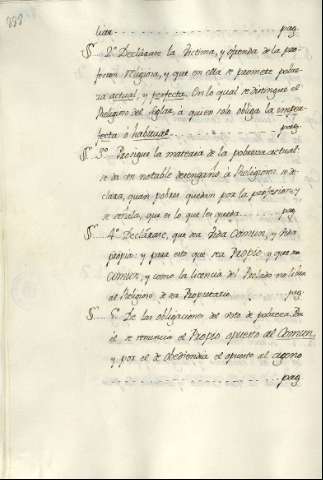 liar pag.
§ 2º Declárase la Victima, y ofrenda de la pro-
fesion religiosa, y que en ella se promete pobre-
za actual, y perfecta. En lo qual se distingue el
Religioso del Seglar, à quien solo obliga la imper-
fecta ò habitual pag.
§ 3º Prosigue la materia de la pobreza actual.
se da un notable desengaño à Religiosos. se de-
clara, quan pobres quedan por la profesion, y
se señala, que es lo que les queda pag.
§ 4º Declárase, que sea Vida comun, y Vida
propia: y para esto que sea Propio, y que sea
comun, y como la licencia del Prelado no libra
al Religioso de ser Propietario pag.
§ 5º De las obligaciones del voto de pobreza. Por
él se renuncia el Propio opuesto al Comun,
y por el de Obediencia el opuesto al ageno
pag.